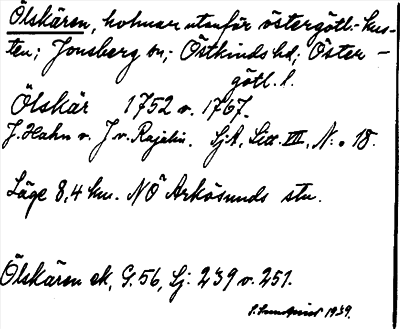 Ölskären, holmar utanför östergötl. kus-
ten; Jonsberg sn; Östkinds hd; Öster-
götl. l.
Ölskär 1752 o. 1767.
J. Hahn o. J v. Rajalin. SjA, Litt. III, N:o 18.
Läge 8,4 km. NÖ Arkösunds stn.
Ölskären ek, G. 56, Sj: 239 o. 251.
S. Lundqvist 1939.